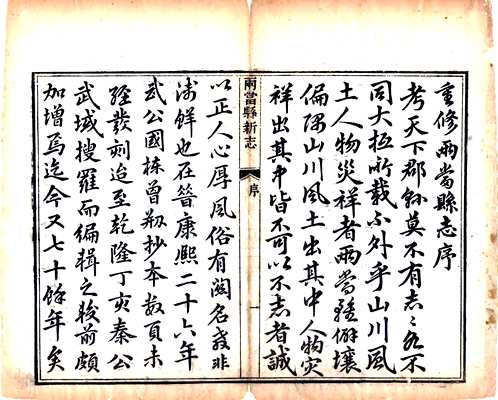 重修兩當縣志序
考天下郡縣莫不有志〻名不
同大抵所載不外乎山川風
土人物災祥者兩當雖僻壤
偏隅山川風土出其中人物灾
祥出其中皆不可以不志者誠
兩當縣新志
序
一
以正人心厚風俗有関名教非
淺鮮也在昝康熙二十六年
武公國棟曾剏抄本数頁未
經發刻迨至乾隆丁亥秦公
武域搜羅而編輯之較前頗
加增焉迄今又七十餘年矣